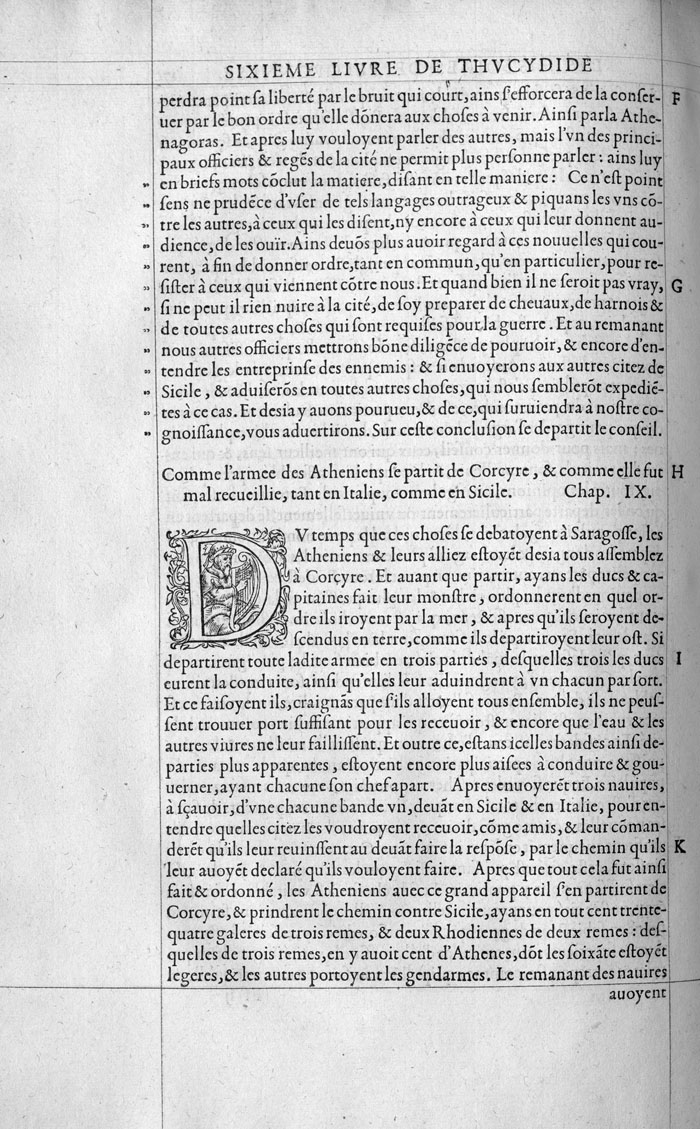 SIXIEME LIVRE DE THVCYDIDE
perdra point ſa liberté par le bruit qui court, ains ſ'efforcera de la conſer- F
uer par le bon ordre qu'elle dõnera aux choſes à venir. Ainſi parla Athe-
nagoras. Et apres luy vouloyent parler des autres, mais l'vn des princi-
paux officiers & regẽs de la cité ne permit plus perſonne parler : ains luy
en briefs mots cõclut la matiere, diſant en telle maniere : Ce n'eſt point
ſens ne prudẽce d'vſer de tels langages outrageux & piquans les vns cõ-
tre les autres, à ceux qui les diſent, ny encore à ceux qui leur donnent au-
dience, de les ouïr. Ains deuõs plus auoir regard à ces nouuelles qui cou-
rent, à fin de donner ordre, tant en commun, qu'en particulier, pour re-
ſiſter à ceux qui viennent cõtre nous. Et quand bien il ne ſeroit pas vray, G
ſi ne peut il rien nuire à la cité, de ſoy preparer de cheuaux, de harnois &
de toutes autres choſes qui ſont requiſes pour la guerre. Et au remanant
nous autres officiers mettrons bõne diligẽce de pouruoir, & encore d'en-
tendre les entreprinſe des ennemis : & ſi enuoyerons aux autres citez de
Sicile, & aduiſerõs en toutes autres choſes, qui nous ſemblerõt expediẽ-
tes à ce cas. Et desia y auons pourueu, & de ce, qui ſuruiendra à noſtre co-
gnoiſſance, vous aduertirons. Sur ceſte concluſion ſe departit le conſeil.
Comme l'armee des Atheniens ſe partit de Corcyre, & comme elle fut H
mal recueillie, tant en Italie, comme en Sicile. Chap. IX.
DV temps que ces choſes ſe debatoyent à Saragoſſe, les
Atheniens & leurs alliez eſtoyẽt desia tous aſſemblez
à Corçyre. Et auant que partir, ayans les ducs & ca-
pitaines fait leur monſtre, ordonnerent en quel or-
dre ils iroyent par la mer, & apres qu'ils ſeroyent de-
ſcendus en terre, comme ils departiroyent leur oſt. Si
departirent toute ladite armee en trois parties, deſquelles trois les ducs I
eurent la conduite, ainſi qu'elles leur aduindrent à vn chacun par ſort.
Et ce faiſoyent ils, craignãs que ſ'ils alloyent tous enſemble, ils ne peuſ-
ſent trouuer port ſuffiſant pour les receuoir, & encore que l'eau & les
autres viures ne leur failliſſent. Et outre ce, eſtans icelles bandes ainſi de-
parties plus apparentes, eſtoyent encore plus aiſees à conduire & gou-
uerner, ayant chacune ſon chef apart. Apres enuoyerẽt trois nauires,
à ſçauoir, d'vne chacune bande vn, deuãt en Sicile & en Italie, pour en-
tendre quelles citez les voudroyent receuoir, cõme amis, & leur cõman-
derẽt qu'ils leur reuinſſent au deuãt faire la reſpõſe, par le chemin qu'ils K
leur auoyẽt declaré qu'ils vouloyent faire. Apres que tout cela fut ainſi
fait & ordonné, les Atheniens auec ce grand appareil ſ'en partirent de
Corcyre, & prindrent le chemin contre Sicile, ayans en tout cent trente-
quatre galeres de trois remes, & deux Rhodiennes de deux remes : deſ-
quelles de trois remes, en y auoit cent d'Athenes, dõt les ſoixãte eſtoyẽt
legeres, & les autres portoyent les gendarmes. Le remanant des nauires
auoyent